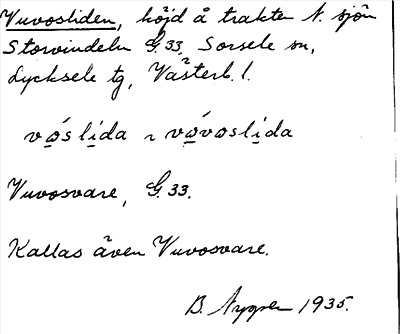 Vuvosliden, höjd å trakten N. sjön
Storvindeln G.33, Sorsele sn,
Lycksele tg, Västerb. l.
vǫ́slịda ~ vǫ́vǫslịda
Vuvosvare, G.33.
Kallas även Vuvosvare.
B. Nygren 1935.